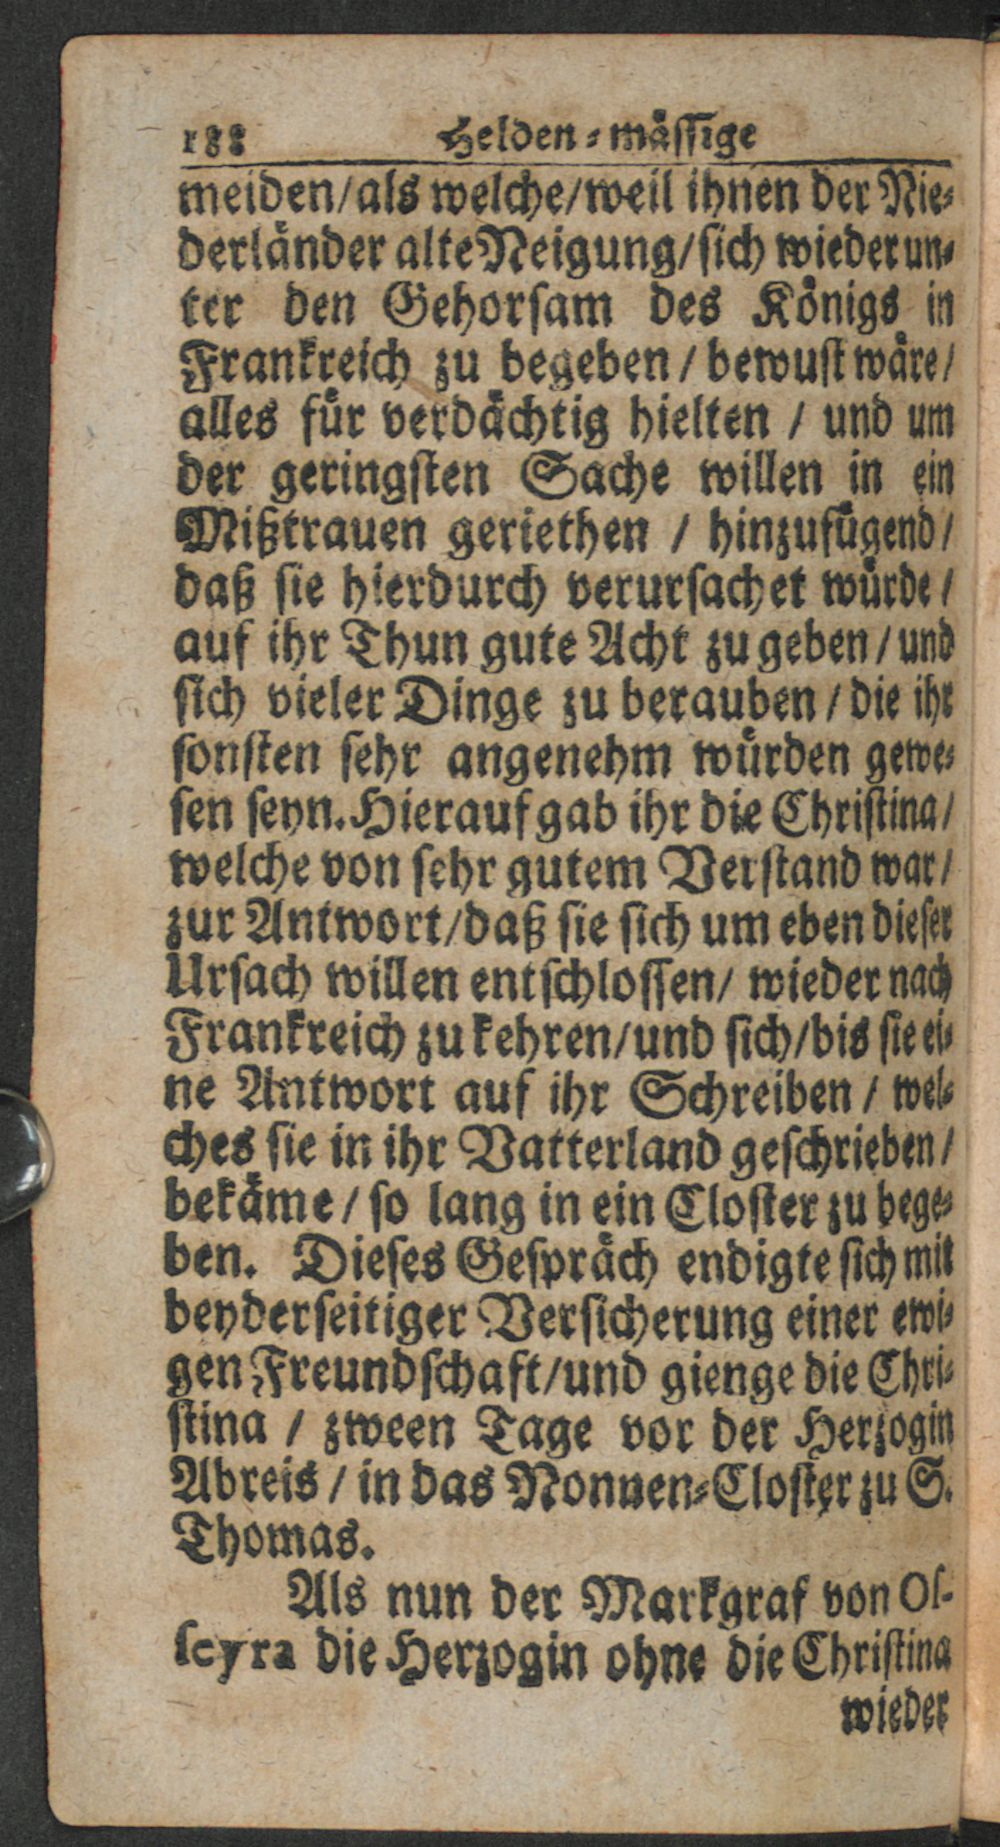 188 Helden⸗mäſſige
meiden/als welche/weil ihnen der Nie⸗
derländer alte Neigung/ſich wieder un⸗
ter den Gehorſam des Königs in
Frankreich zu begeben / bewuſt wäre/
alles für verdächtig hielten / und um
der geringſten Sache willen in ein
Mißtrauen geriethen / hinzufügend/
daß ſie hierdurch verurſachet würde /
auf ihr Thun gute Acht zu geben / und
ſich vieler Dinge zu berauben / die ihr
ſonſten ſehr angenehm würden gewe⸗
ſen ſeyn. Hierauf gab ihr die Chriſtina/
welche von ſehr gutem Verſtand war/
zur Antwort/daß ſie ſich um eben dieſer
Urſach willen entſchloſſen/ wieder nach
Frankreich zu kehren/und ſich/bis ſie ei⸗
ne Antwort auf ihr Schreiben / wel⸗
ches ſie in ihr Vatterland geſchrieben/
bekäme / ſo lang in ein Cloſter zu bege⸗
ben. Dieſes Geſpräch endigte ſich mit
beyderſeitiger Verſicherung einer ewi⸗
gen Freundſchaft/und gienge die Chri⸗
ſtina / zween Tage vor der Herzogin
Abreis / in das Nonnen⸗Cloſter zu S.
Thomas.
Als nun der Markgraf von Oſ-
ſcyra die Herzogin ohne die Chriſtina
wieder